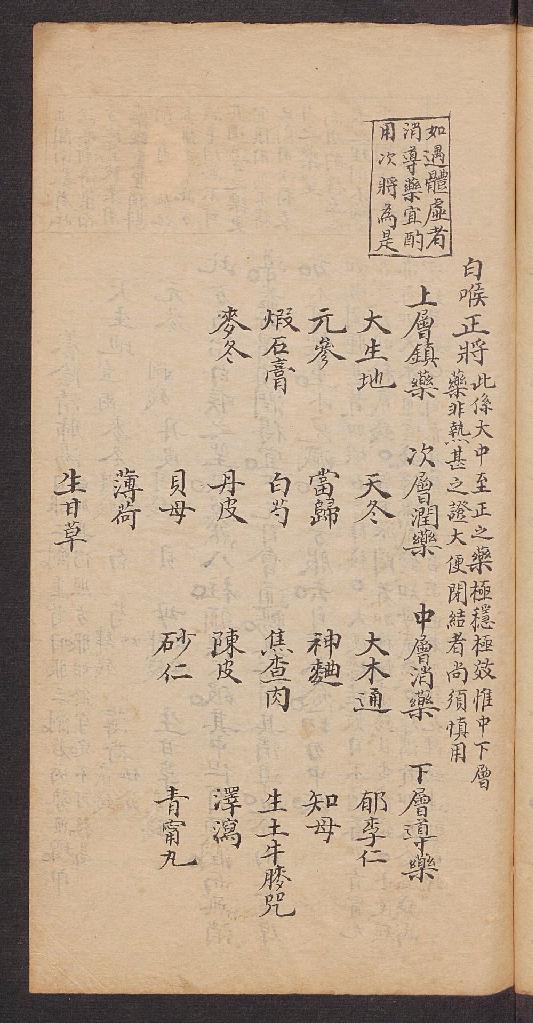 如遇體虛者
消導藥宜酌
用次將為是
白喉正將
此係大中至正之藥極穩極效惟中下層
藥非熱甚之證大便閉結者尚須慎用
上層鎮藥 次層潤藥 中層消藥 下層導藥
大生地 天冬 大木通 郁李仁
元參 當歸 神麯 知母
煆石膏 白芍 焦查肉 生土牛膝兜
麥冬 丹皮 陳皮 澤瀉
貝母 砂仁 青甯丸
薄荷
生甘草